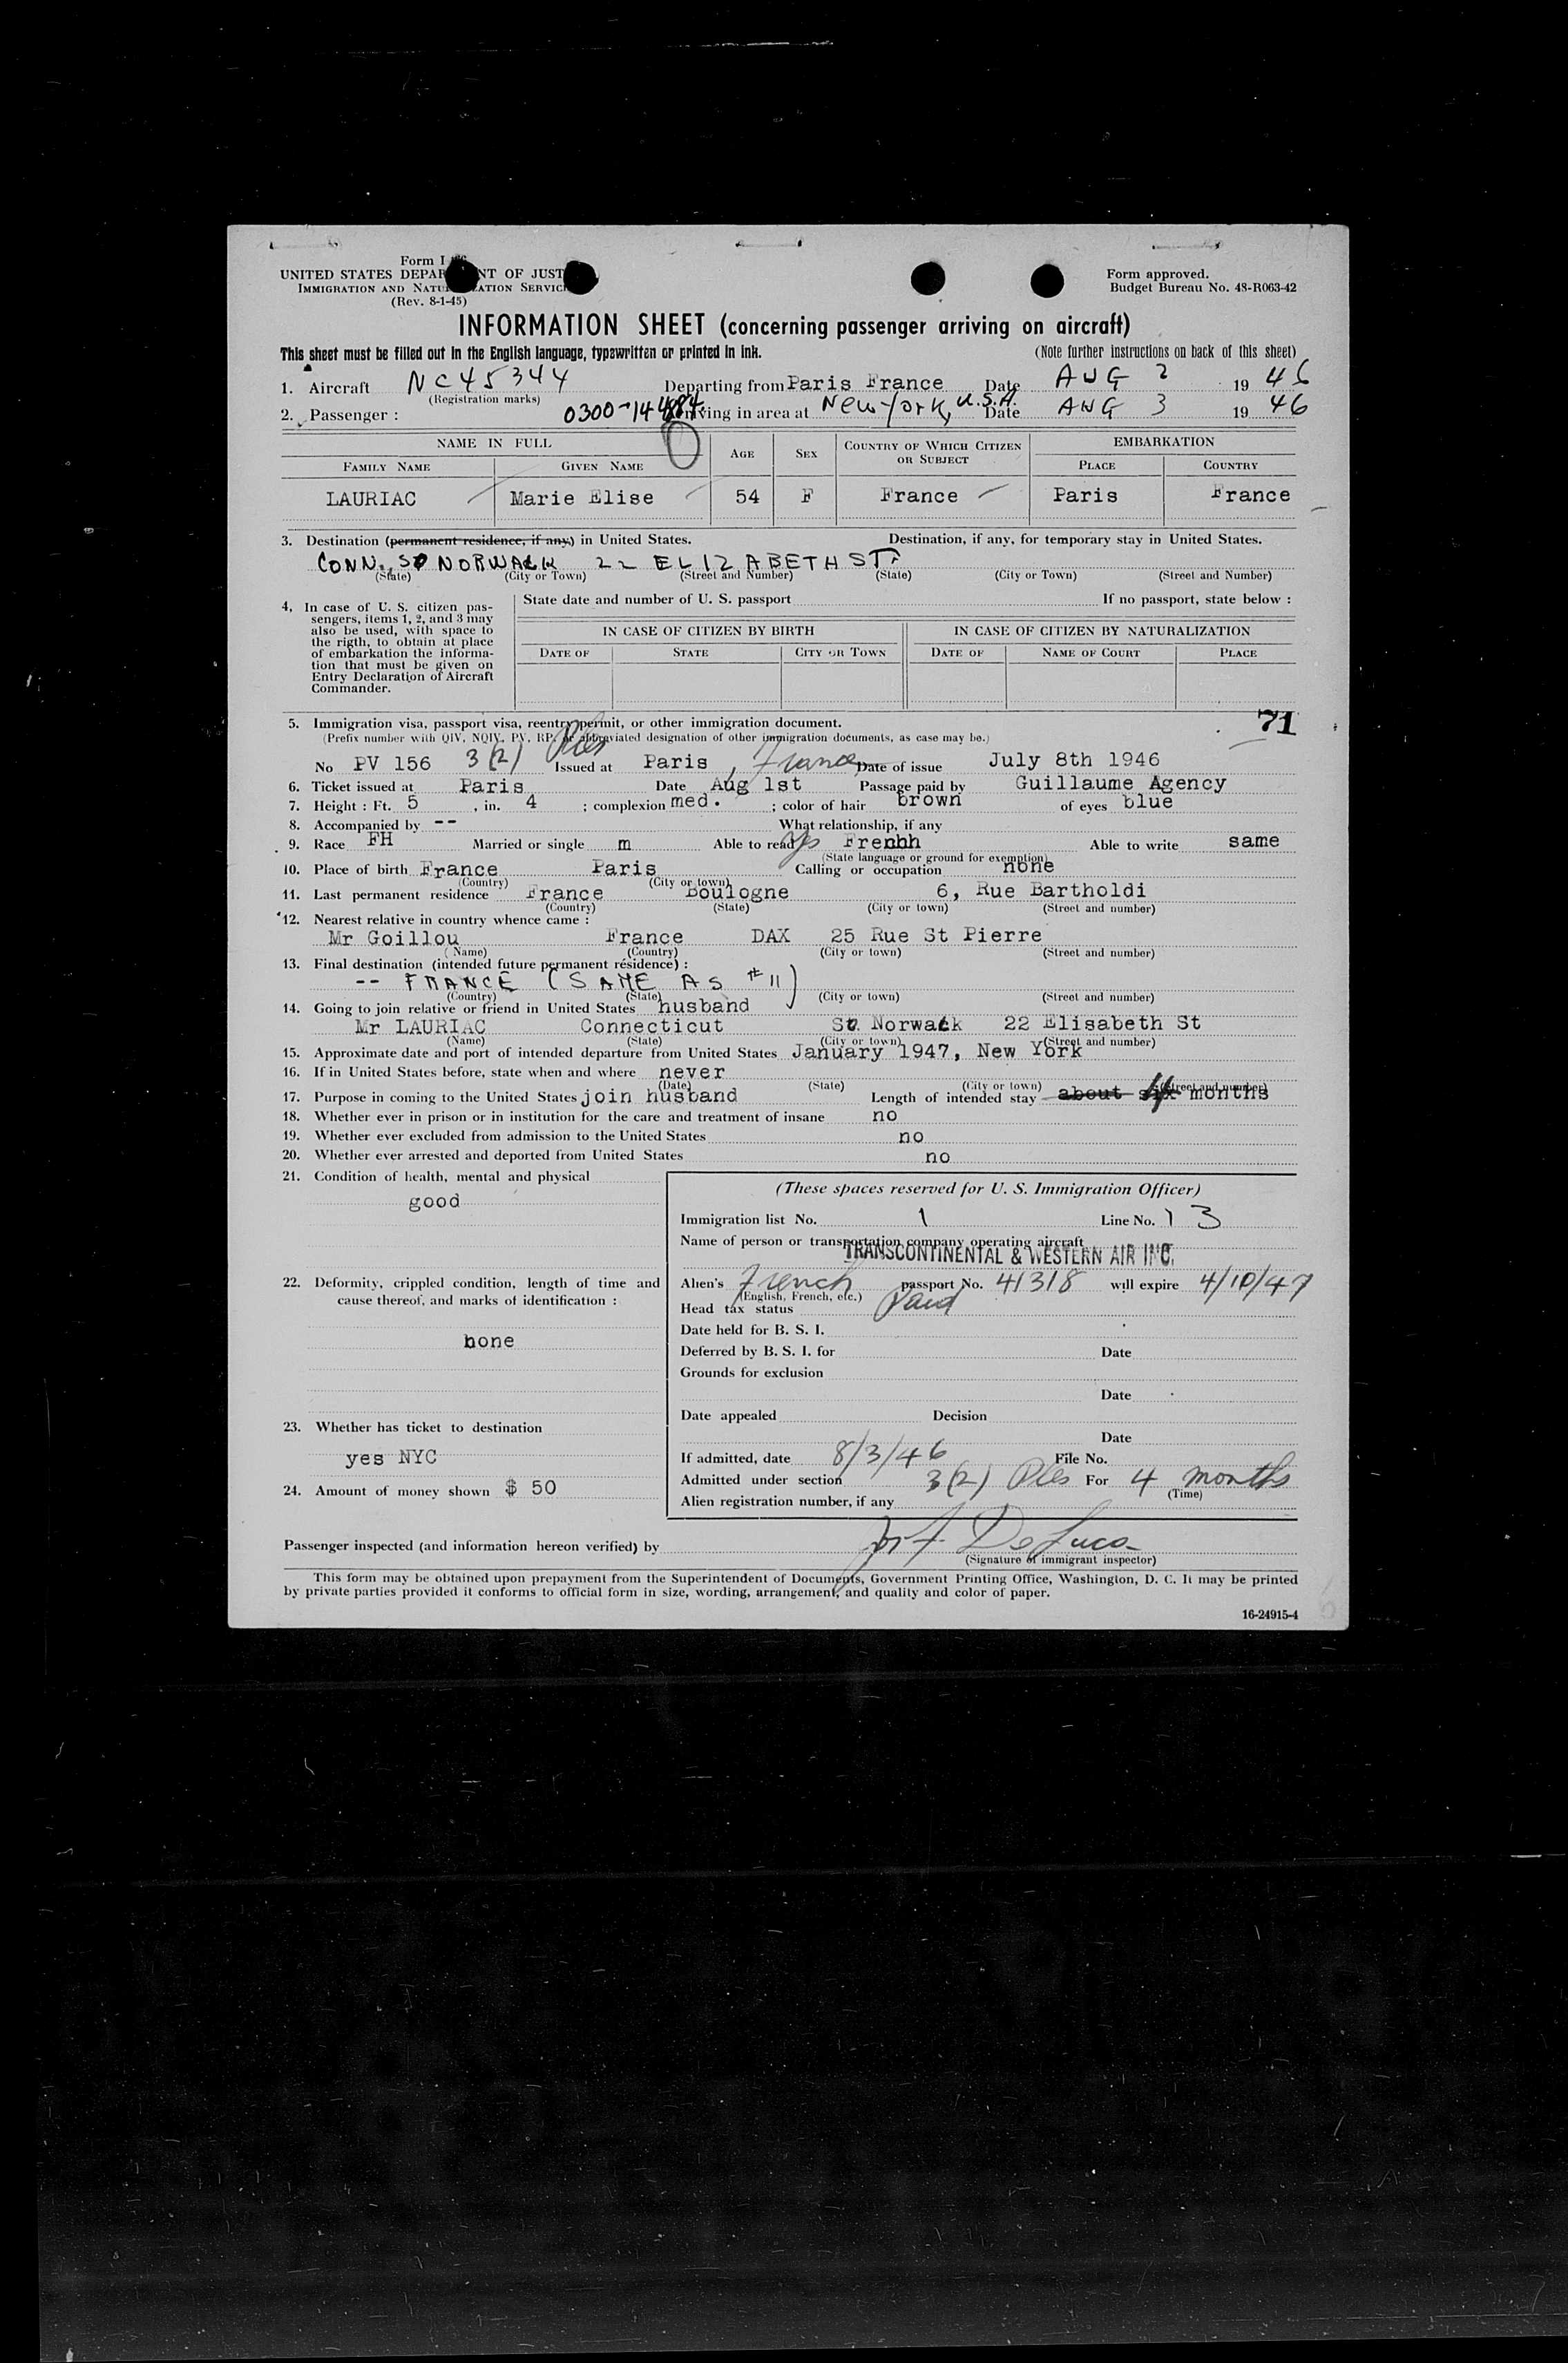 Form I
UNITED STATES DEPAR NT OF JUST
IMMIGRATION AND NATU ZATION SERVIC
(Rev. 8-1-45)
Form approved.
Budget Bureau No. 43-R063-42
INFORMATION SHEET (concerning passenger arriving on aircraft)
This sheet must be filled out in the English language, typewritten or printed in ink. (Note further instructions on back of this sheet)
1. Aircraft NC45344 Departing from Paris France Date AUG 2 19 46
(Registration marks)
2. Passenger : 0300-14 Arriving in area at New York, U.S.A. Date AUG 3 19 46
NAME IN FULL AGE SEX COUNTRY OF WHICH CITIZEN OR SUBJECT EMBARKATION
FAMILY NAME GIVEN NAME PLACE COUNTRY
LAURIAC Marie Elise 54 F France Paris France
3. Destination (permanent residence, if any,) in United States. Destination, if any, for temporary stay in United States.
CONN., SO NORWALK 22 ELIZABETH ST.
(State) (City or Town) (Street and Number) (State) (City or Town) (Street and Number)
4. In case of U. S. citizen passengers, items 1, 2, and 3 may also be used, with space to the rigth, to obtain at place of embarkation the information that must be given on Entry Declaration of Aircraft Commander.
State date and number of U. S. passport If no passport, state below :
IN CASE OF CITIZEN BY BIRTH IN CASE OF CITIZEN BY NATURALIZATION
DATE OF STATE CITY OR TOWN DATE OF NAME OF COURT PLACE
5. Immigration visa, passport visa, reentry permit, or other immigration document. 71
(Prefix number with QIV, NQIV, PV, RP, or abbreviated designation of other immigration documents, as case may be.)
No PV 156 3(2) Ples Issued at Paris, France Date of issue July 8th 1946
6. Ticket issued at Paris Date Aug 1st Passage paid by Guillaume Agency
7. Height : Ft. 5 , in. 4 ; complexion med. ; color of hair brown of eyes blue
8. Accompanied by -- What relationship, if any
9. Race FH Married or single m Able to read yes Frenhh Able to write same
(State language or ground for exemption)
10. Place of birth France Paris Calling or occupation none
(Country) (City or town)
11. Last permanent residence France Boulogne 6, Rue Bartholdi
(Country) (State) (City or town) (Street and number)
12. Nearest relative in country whence came :
Mr Goillou France DAX 25 Rue St Pierre
(Name) (Country) (City or town) (Street and number)
13. Final destination (intended future permanent résidence) :
-- FRANCE (SAME AS #11)
(Country) (State) (City or town) (Street and number)
14. Going to join relative or friend in United States husband
Mr LAURIAC Connecticut So. Norwalk 22 Elisabeth St
(Name) (State) (City or town) (Street and number)
15. Approximate date and port of intended departure from United States January 1947, New York
16. If in United States before, state when and where never
(Date) (State) (City or town) (Street and number)
17. Purpose in coming to the United States join husband Length of intended stay about six 4 months
18. Whether ever in prison or in institution for the care and treatment of insane no
19. Whether ever excluded from admission to the United States no
20. Whether ever arrested and deported from United States no
21. Condition of health, mental and physical
good
22. Deformity, crippled condition, length of time and cause thereof, and marks of identification :
none
23. Whether has ticket to destination
yes NYC
24. Amount of money shown $ 50
(These spaces reserved for U. S. Immigration Officer)
Immigration list No. 1 Line No. 13
Name of person or transportation company operating aircraft
TRANSCONTINENTAL & WESTERN AIR INC.
Alien's French passport No. 41318 will expire 4/10/47
(English, French, etc.)
Head tax status Paid
Date held for B. S. I.
Deferred by B. S. I. for Date
Grounds for exclusion
Date
Date appealed Decision
Date
If admitted, date 8/3/46 File No.
Admitted under section 3(2) Ples For 4 months
(Time)
Alien registration number, if any
Passenger inspected (and information hereon verified) by De Luca
(Signature of immigrant inspector)
This form may be obtained upon prepayment from the Superintendent of Documents, Government Printing Office, Washington, D. C. It may be printed
by private parties provided it conforms to official form in size, wording, arrangement, and quality and color of paper.
16-24915-4